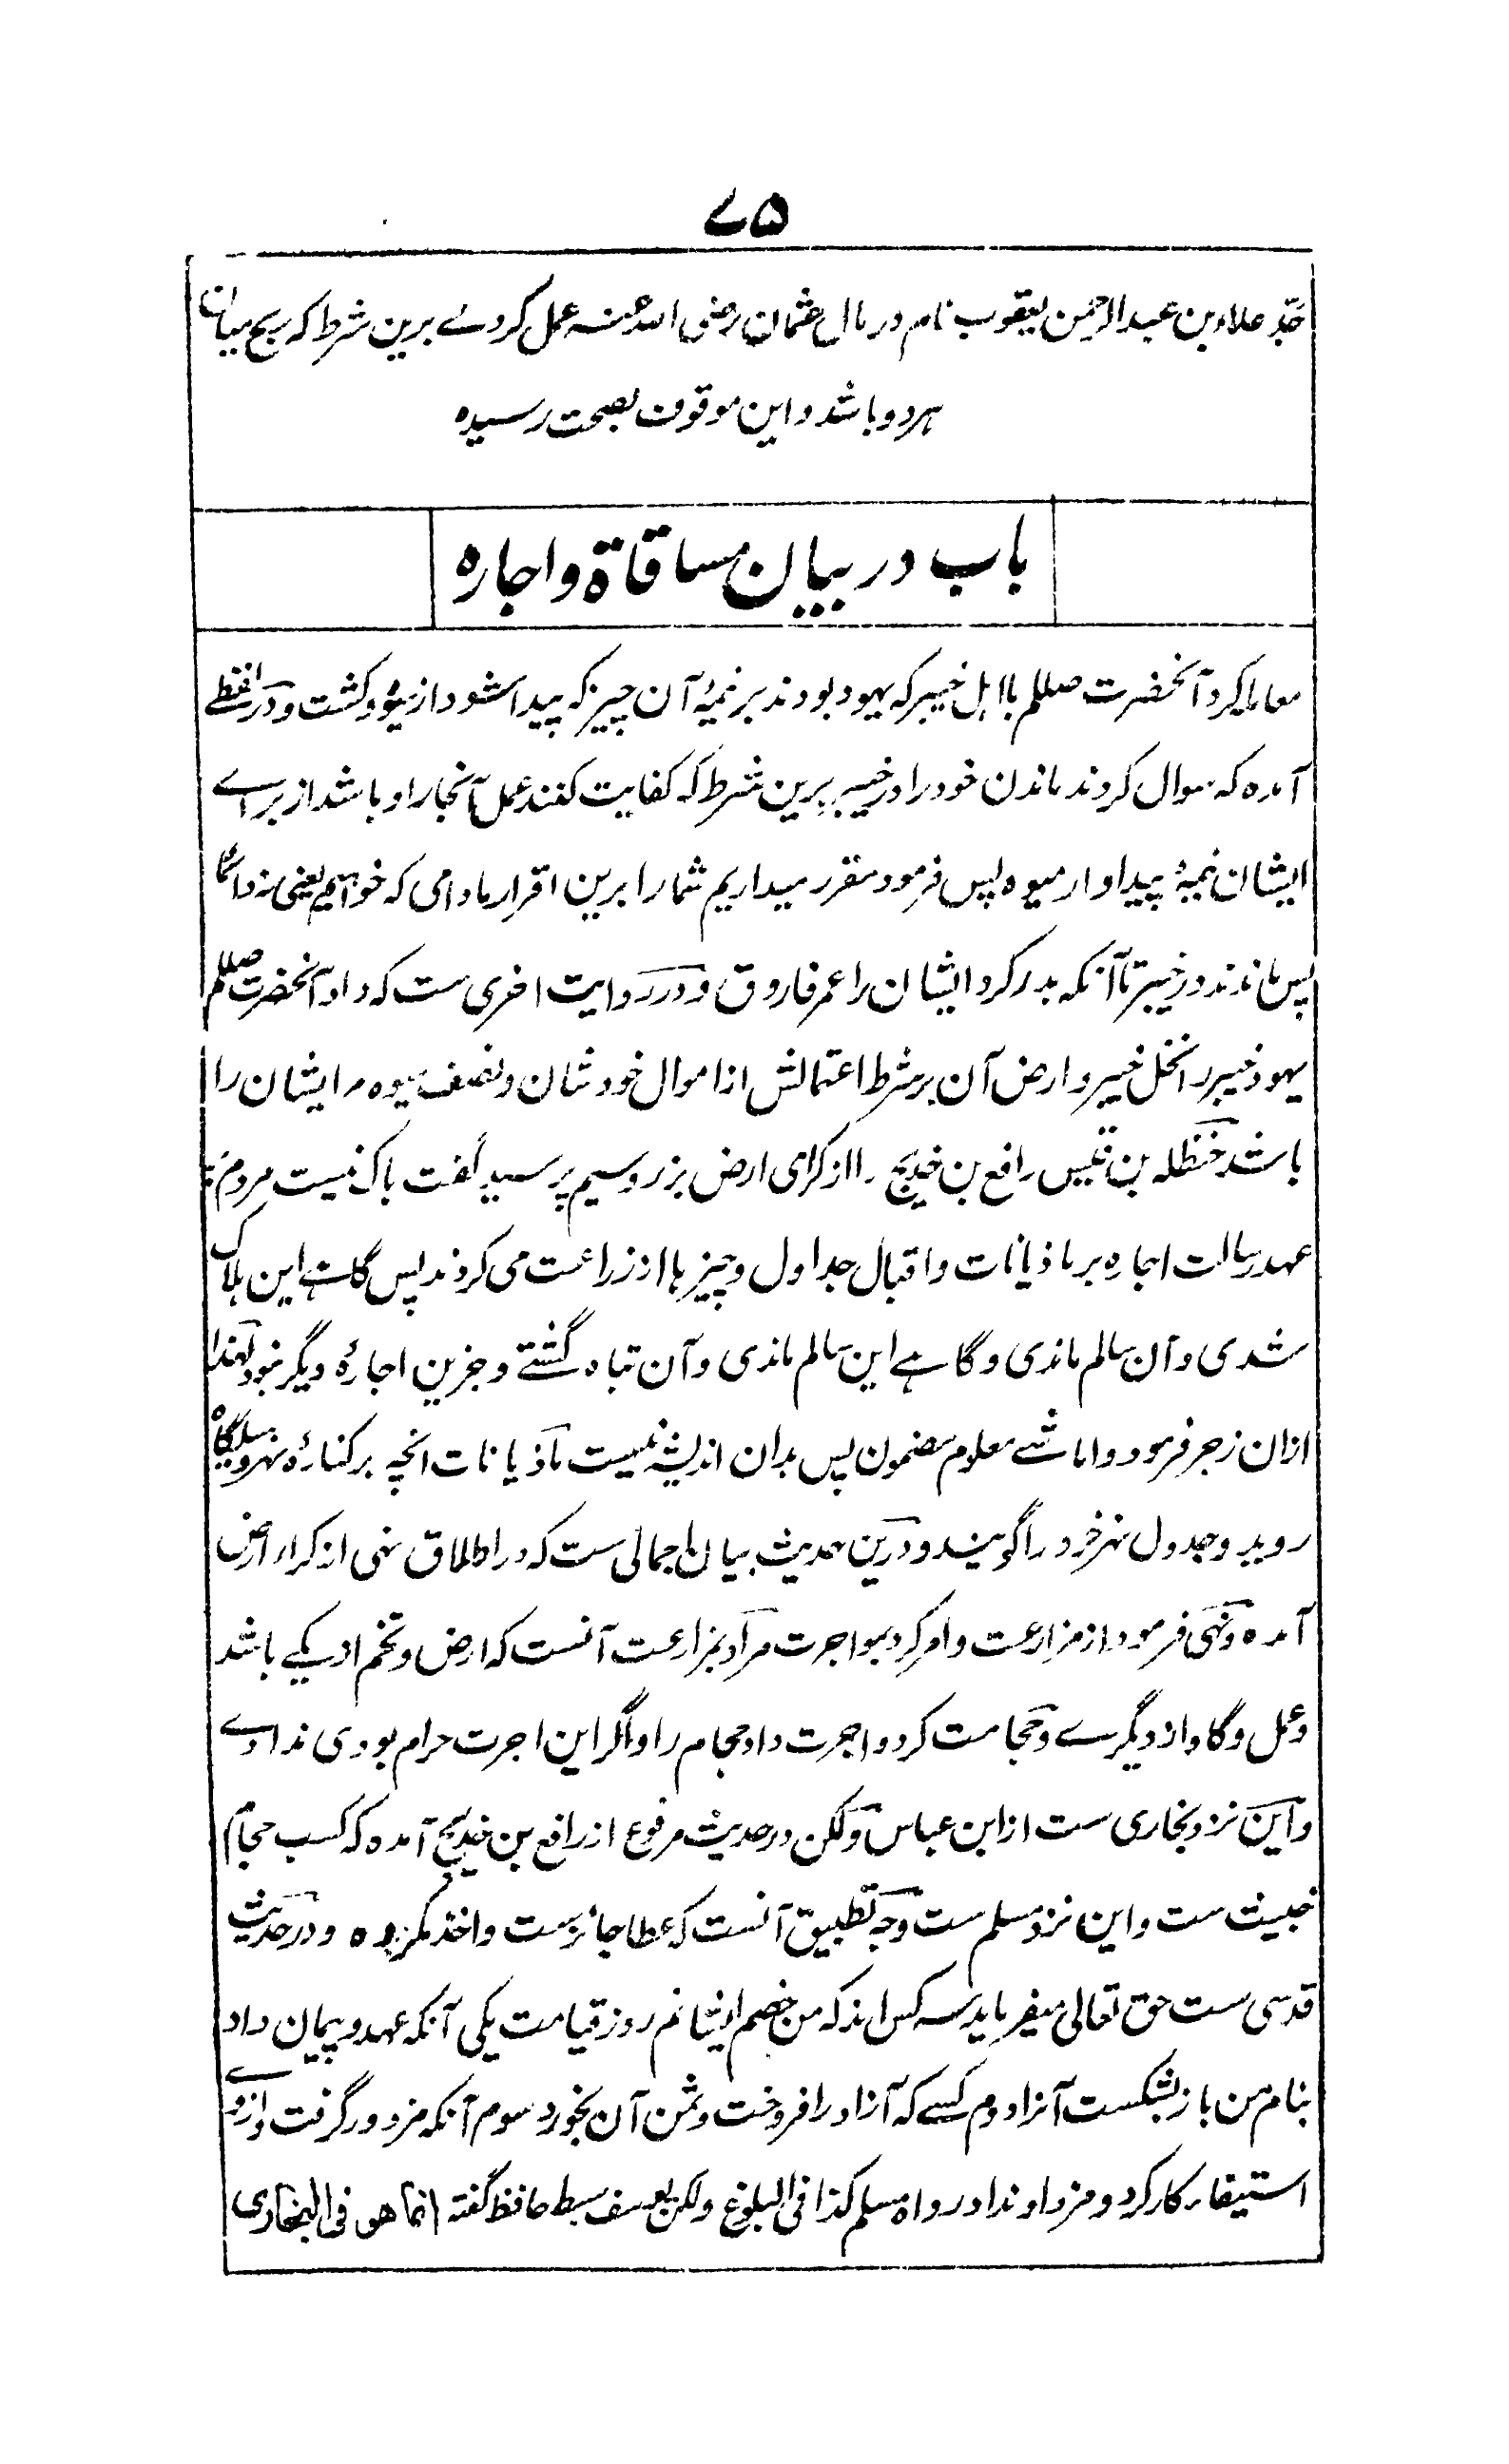 ۷۵
جد علاء بن عبد الرحمن یعقوب نام در مال عثمان رضی الله عنه عمل کردے برین شرط که ربح میان
هر دو باشد و این موقوف بصحت رسیده
باب در بیان مساقاة و اجاره
معامله کرد آنحضرت صللم با اهل خیبر که یهود بودند بر نیمۂ آن چیز که پیدا شود از میوه و کشت و در لفظے
آمده که سوال کردند ماندن خود را در خیبر برین شرط که کفایت کنند عمل آنجا را و باشد از براے
ایشان نیمۂ پیداوار میوه پس فرمود مقرر میداریم شما را برین اقرار مادامی که خواهیم یعنی نه دائما
پس ماندند در خیبر تا آنکه بدر کرد ایشان را عمر فاروق و در روایت اخری ست که داد آنحضرت صللم
یهود خیبر را نخل خیبر و ارض آن بر شرط اعتمالش از اموال خود شان و نصف میوه مر ایشان را
باشد حنظله بن قیس رافع بن خدیج را از کرای ارض بزر و سیم پرسید گفت باک نیست مردم
عهد رسالت اجاره بر ماذیانات و اقبال جداول و چیزها از زراعت می کردند پس گاهے این هلاک
شدی و آن سالم ماندی و گاهے این سالم ماندی و آن تباه گشتے و جز این اجارۂ دیگر نبود لهذا
ازان زجر فرمود و اما شے معلوم مضمون پس بدان اندیشه نیست ماذیانات انچه بر کنارۂ نهر و مسیلگاه
روید و جدول نهر خرد را گویند و درین حدیث بیان اجمالی ست که در اطلاق نهی از کراء ارض
آمده و نهی فرمود از مزارعت و امر کرد بمواجرت مراد بمزارعت آنست که ارض و تخم از یکے باشد
و عمل و گاو از دیگرے و حجامت کرد و اجرت داد حجام را و اگر این اجرت حرام بودی ندادے
و این نزد بخاری ست از ابن عباس و لکن در حدیث مرفوع از رافع بن خدیج آمده که کسب حجام
خبیث ست و این نزد مسلم ست وجه تطبیق آنست که عطا جائز ست و اخذ مکروه و در حدیث
قدسی ست حق تعالی میفرماید سه کس اند که من خصم ایشانم روز قیامت یکی آنکه عهد و پیمان داد
بنام من باز بشکست آنرا دوم کسے که آزاد را فروخت و ثمن آن بخورد سوم آنکه مزدور گرفت و از وے
استیفاء کار کرد و مزد او نداد رواه مسلم کذا فی البلوغ و لکن یوسف سبط حافظ گفته انما هو فی البخاری